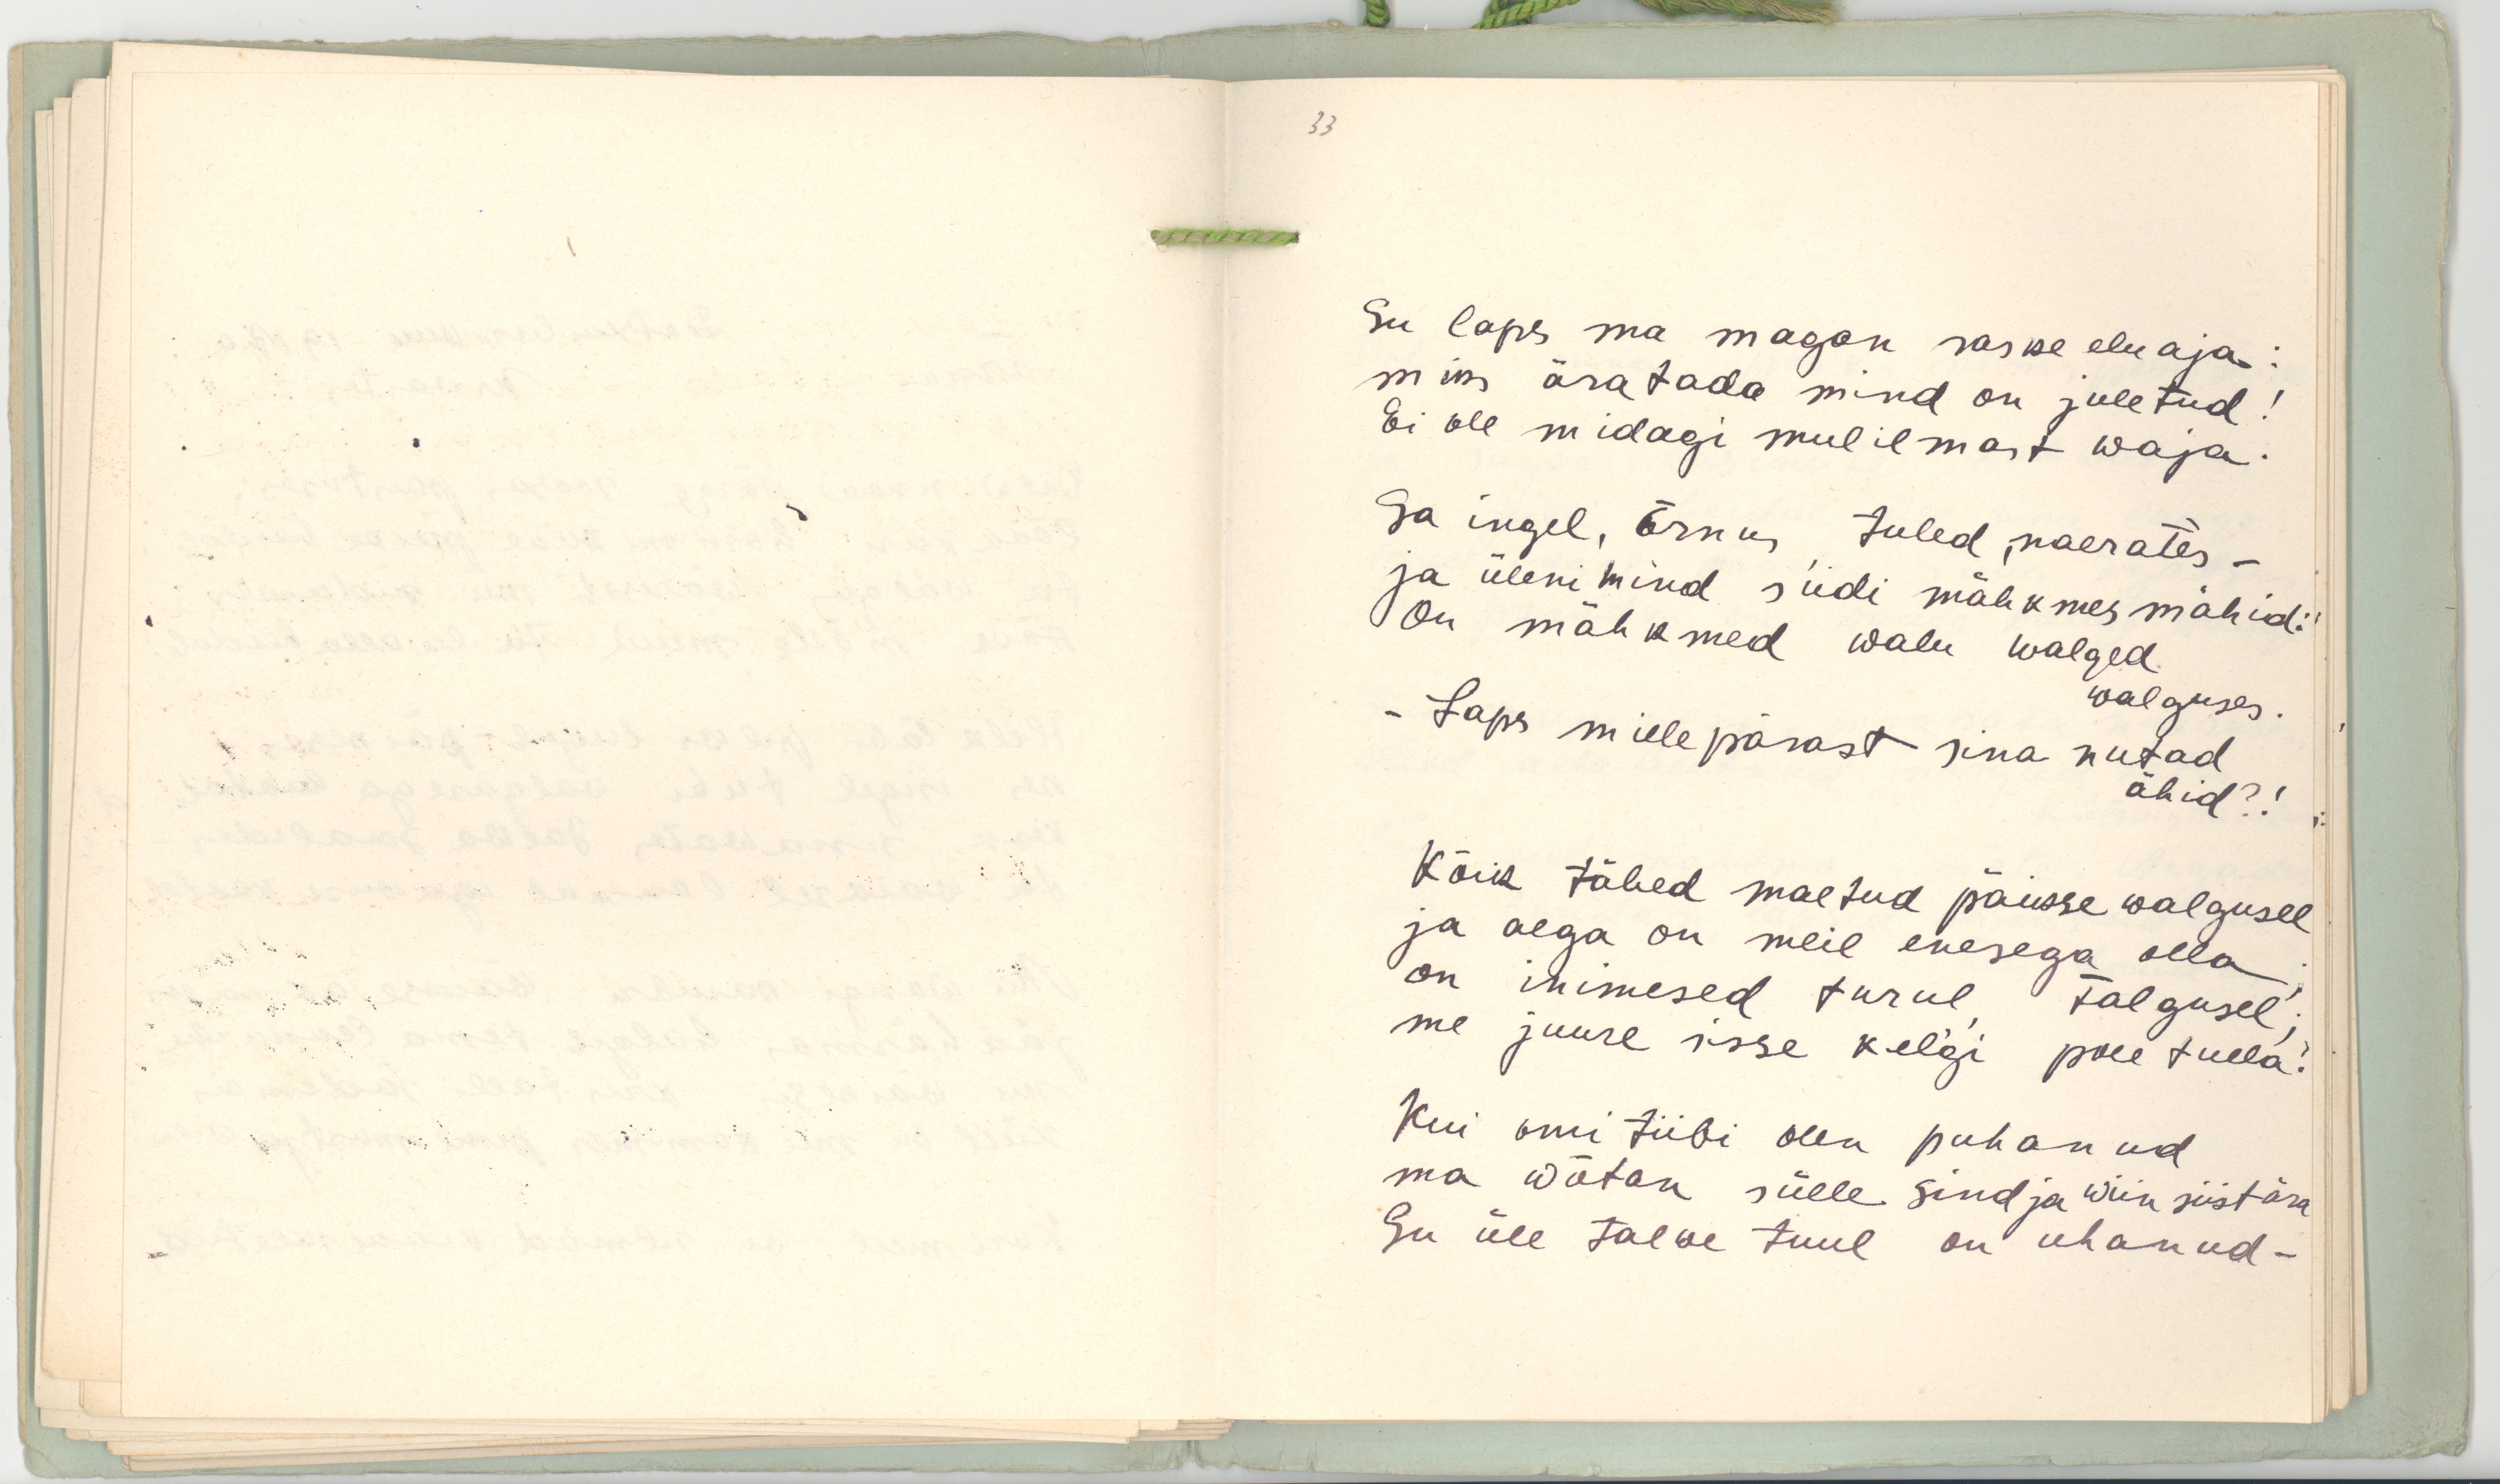 33
Su laps ma magan raske eluaja:
miks äratada mind on juletud!
Ei ole midagi mul ilmast waja.
Sa ingel, õrnus, tuled, naerates –
ja üleni mind siidi mähkmes mähid:
On mähkmed walu walged
walguses.
– Laps mille pärast sina nutad
ähid?!
Kõik tähed maetud päikse walgusel
ja aega on meil enesega olla;
on inimesed turul, talgusel;
me juure sisse kelgi pole tulla!
Kui omi tiibi olen puhanud
ma wõtan sülle sind ja wiin siist ära
Su üle talwe tuul on uhanud –